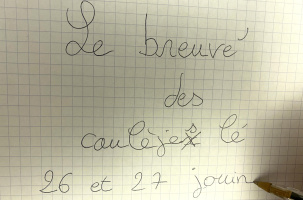 Le breuvé
des
coulèjes lé
26 et 27 jouin